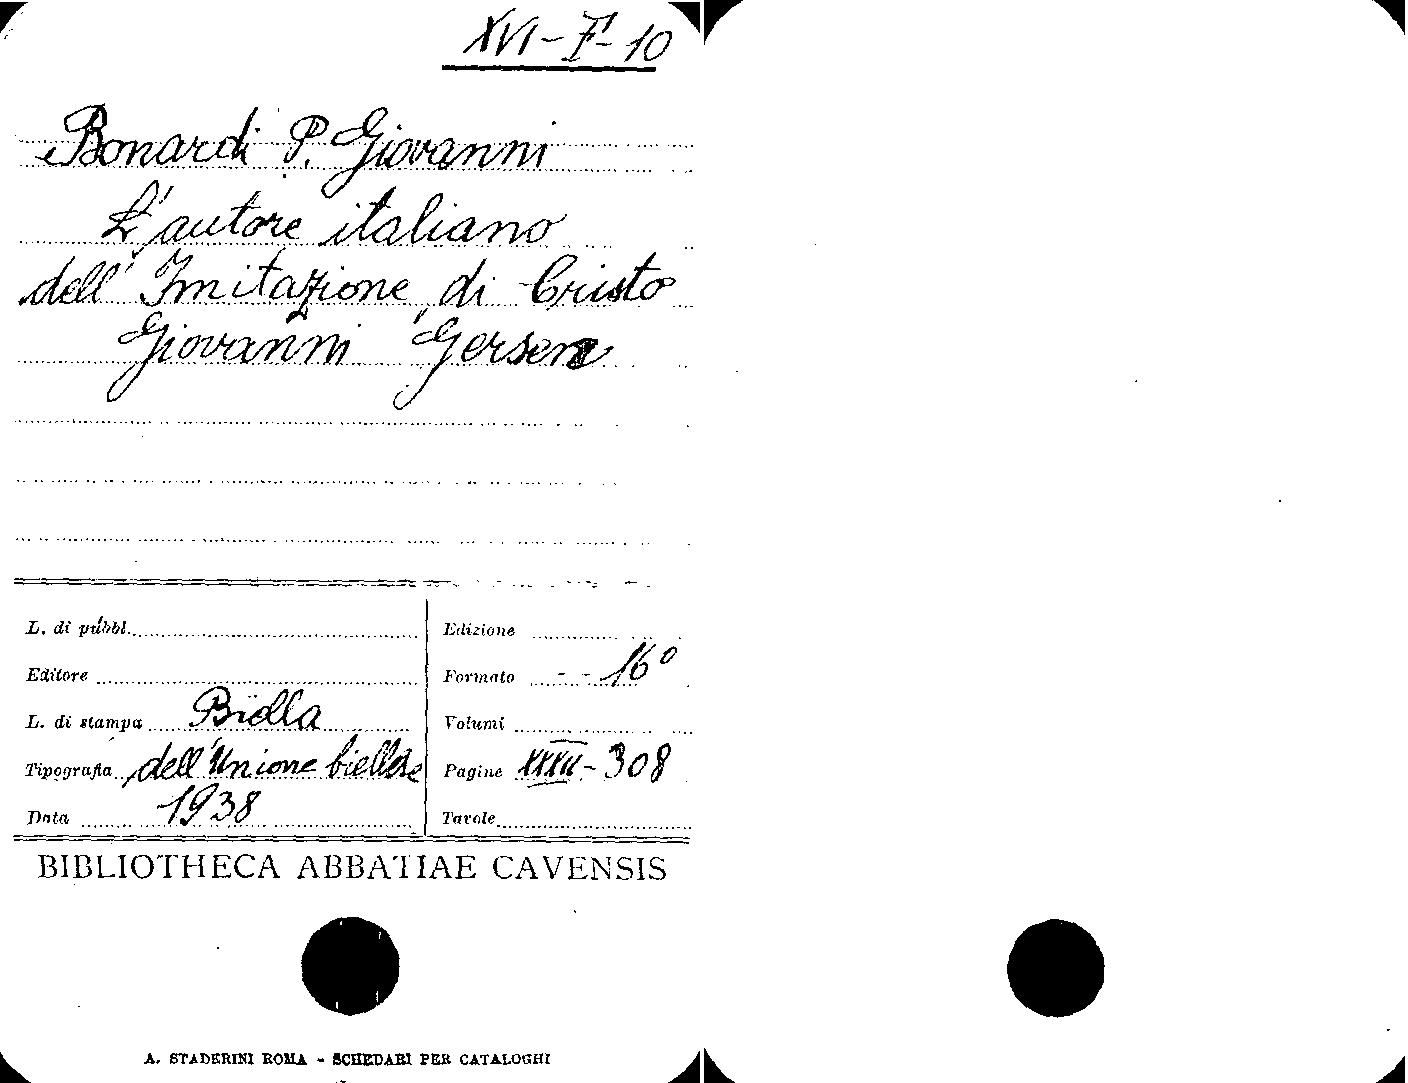 XVI-F-10
Bonardi P. Giovanni
L'autore italiano
dell'Imitazione di Cristo
Giovanni Gersen
L. di pubbl.
Editore
L. di stampa Biella
Tipografia dell'Unione biellese
Data 1938
Edizione
Formato 16°
Volumi
Pagine XXXII-308
Tavole
BIBLIOTHECA ABBATIAE CAVENSIS
A. STADERINI ROMA - SCHEDARI PER CATALOGHI